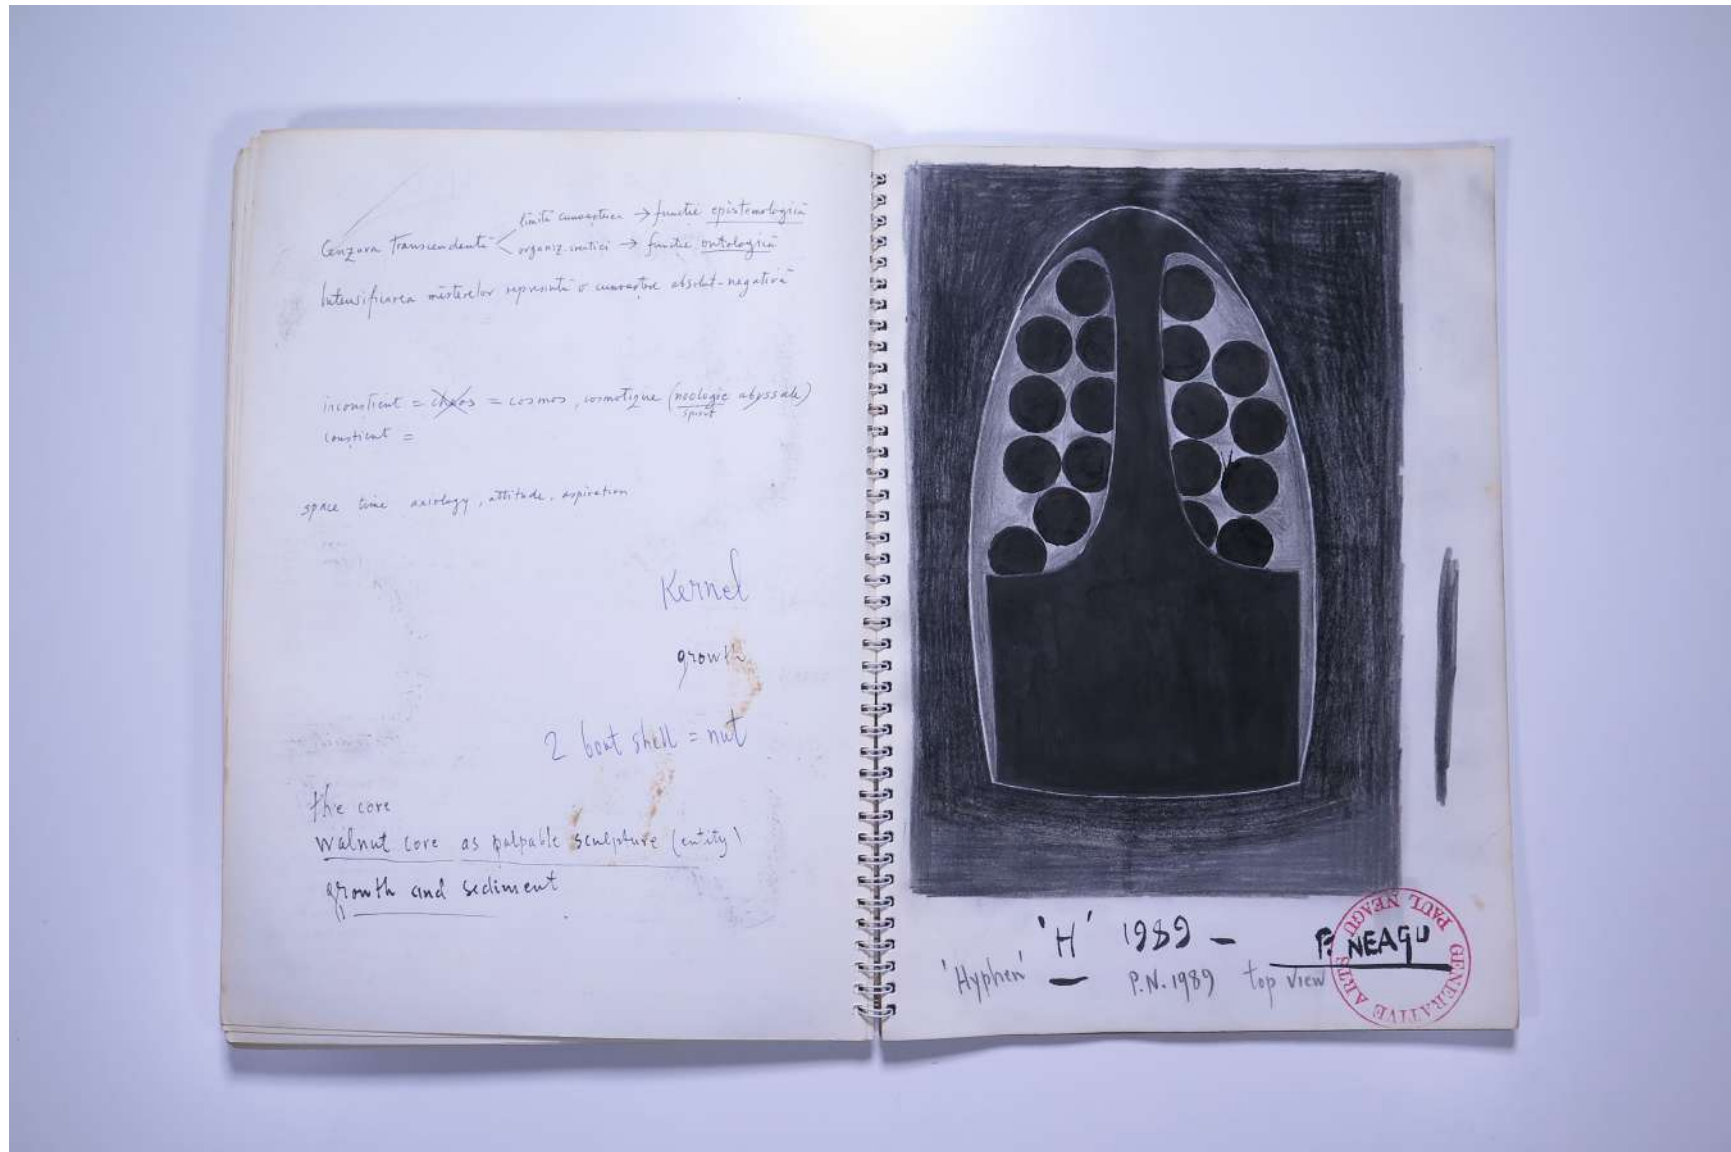 limită cunoaștere → funcție epistemologică
Cenzura Transcendentă <
organiz. creatiei → funcție ontologică
Intensificarea misterelor reprezintă o cunoaștere absolut-negativă
inconstient = chaos = cosmos, cosmotique (noologie abyssale)
spirit
constient =
space time axiology, attitude, aspiration
Kernel
growth
2 boat shell = nut
the core
walnut core as palpable sculpture (entity)
growth and sediment
'H' 1989 – P. NEAGU
'Hyphen' — P.N. 1989 top view
PAUL NEAGU GENERATIVE ARTS